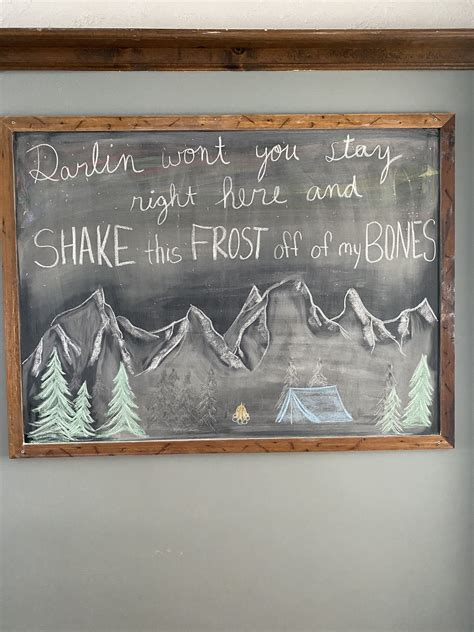 Darlin wont you stay
right here and
SHAKE this FROST off of my BONES